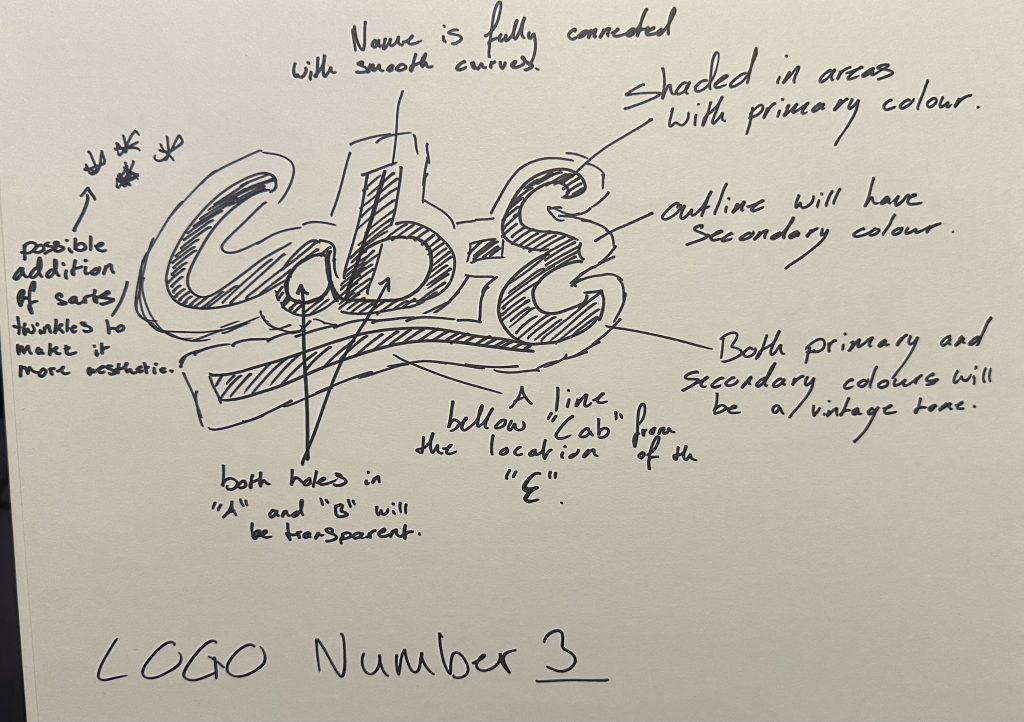 Name is fully connected
with smooth curves.
Shaded in areas
with primary colour.
outline will have
secondary colour.
Both primary and
secondary colours will
be a vintage tone.
possible
addition
of sarts/
twinkles to
make it
more aesthetic.
Cab-E
A line
bellow "Cab" from
the location of th
"E".
both holes in
"A" and "B" will
be transparent.
LOGO Number 3